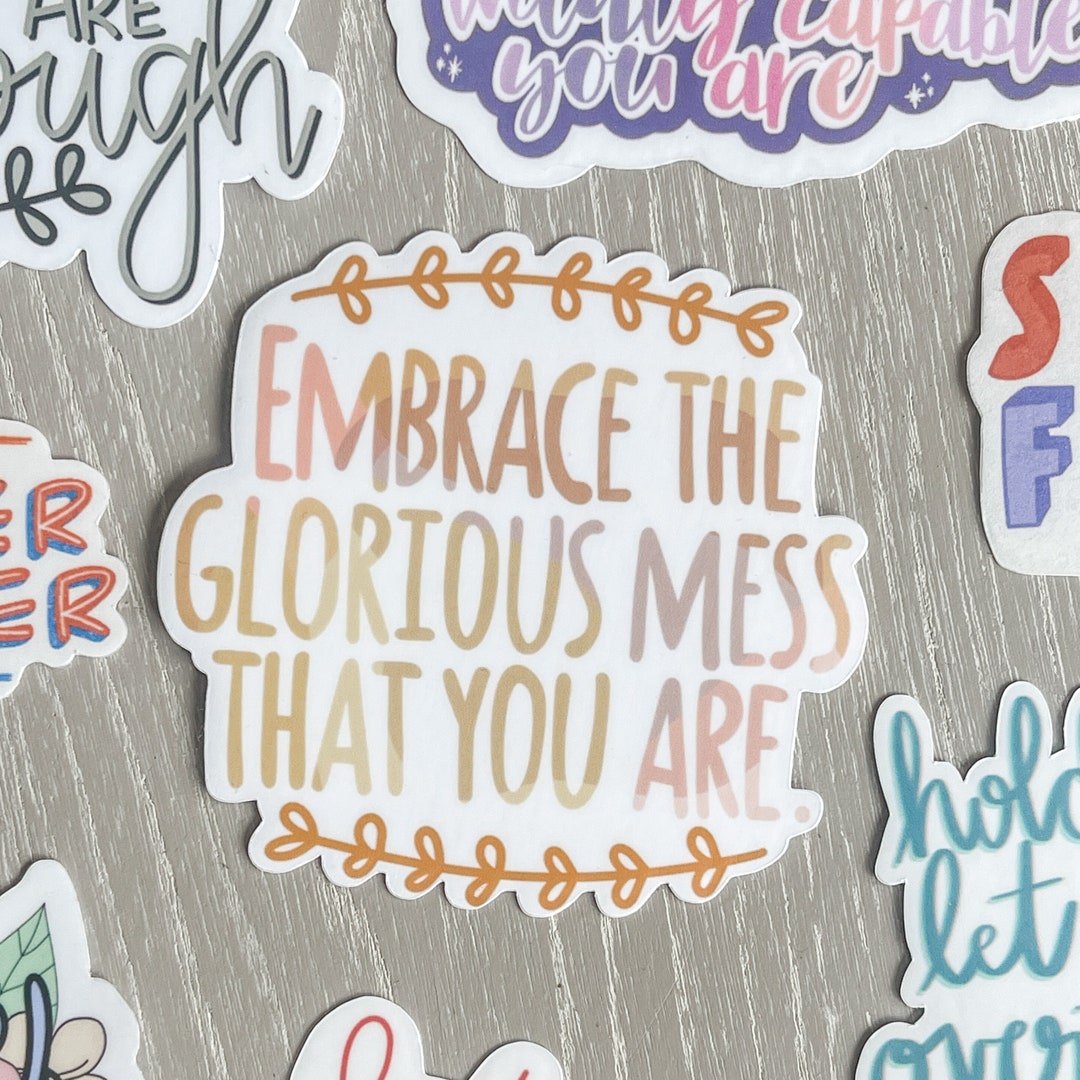 ARE
ough
wildly capable
you are
EMBRACE THE
GLORIOUS MESS
THAT YOU ARE.
S
F
ER
ER
hold
let
over